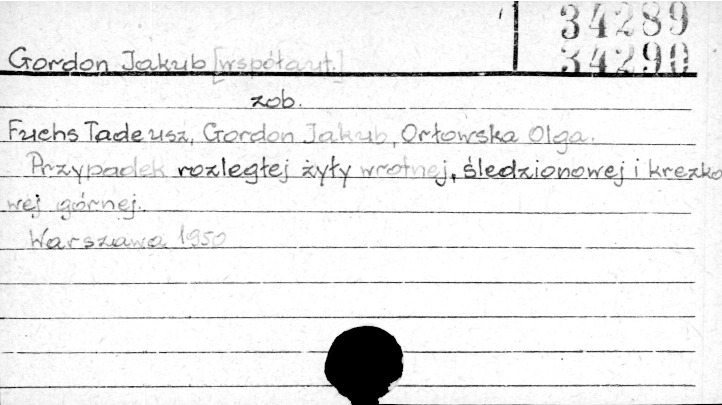 34289
34290
Gordon Jakub [współaut.]
zob.
Fuchs Tadeusz, Gordon Jakub, Orłowska Olga.
Przypadek rozległej żyły wrotnej, śledzionowej i krezko
wej górnej.
Warszawa 1950